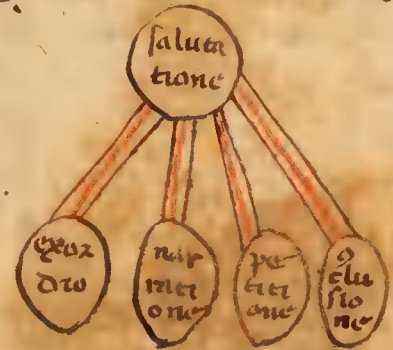 saluta
tione
exor
dio
nar
rati
one
pe
titi
one
ꝯ
clu
sio
ne